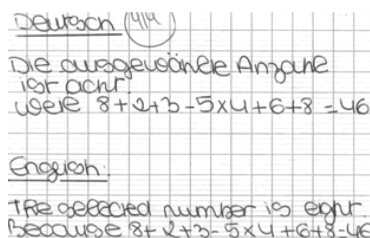 Deutsch 414
Die ausgewählte Anzahl
ist acht.
8+2+3-5x4+6+8=46
English.
The selected number is eight.
Because 8+2+3-5x4+6+8=46